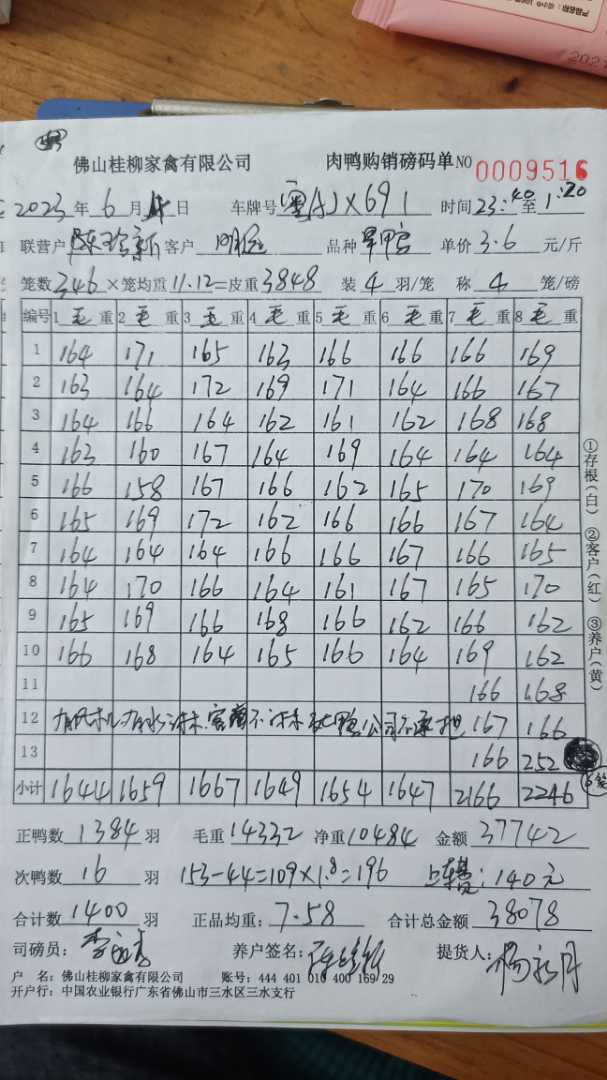 佛山桂柳家禽有限公司 肉鸭购销磅码单NO 0009516
2023年6月14日 车牌号 粤AJX691 时间23:40至1:20
联营户 客户 品种 单价3.6元/斤
笼数346×笼均重11.12=皮重3848 装4羽/笼 称4笼/磅
编号 1毛重 2毛重 3毛重 4毛重 5毛重 6毛重 7毛重 8毛重
1 164 171 165 163 166 166 166 169
2 163 164 172 169 171 164 166 167
3 164 166 164 162 161 162 168 168
4 163 160 167 164 169 164 164 164
5 166 158 167 166 162 165 170 169
6 165 169 172 162 166 166 167 164
7 164 164 164 166 166 167 166 165
8 164 170 166 164 161 167 165 170
9 165 169 166 168 166 162 166 162
10 166 168 164 165 166 164 169 162
11 166 168
12 公司不承担 167 166
13 166 252
6笼
小计 1644 1659 1667 1649 1654 1647 2166 2246
正鸭数1384羽 毛重14332 净重10484 金额37742
次鸭数16羽 153-44=109×1.8=196 上车费:140元
合计数1400羽 正品均重:7.58 合计总金额38078
司磅员: 养户签名: 提货人:
户 名:佛山桂柳家禽有限公司 账号:444 401 010 400 169 29
开户行:中国农业银行广东省佛山市三水区三水支行
①存根(白) ②客户(红) ③养户(黄)